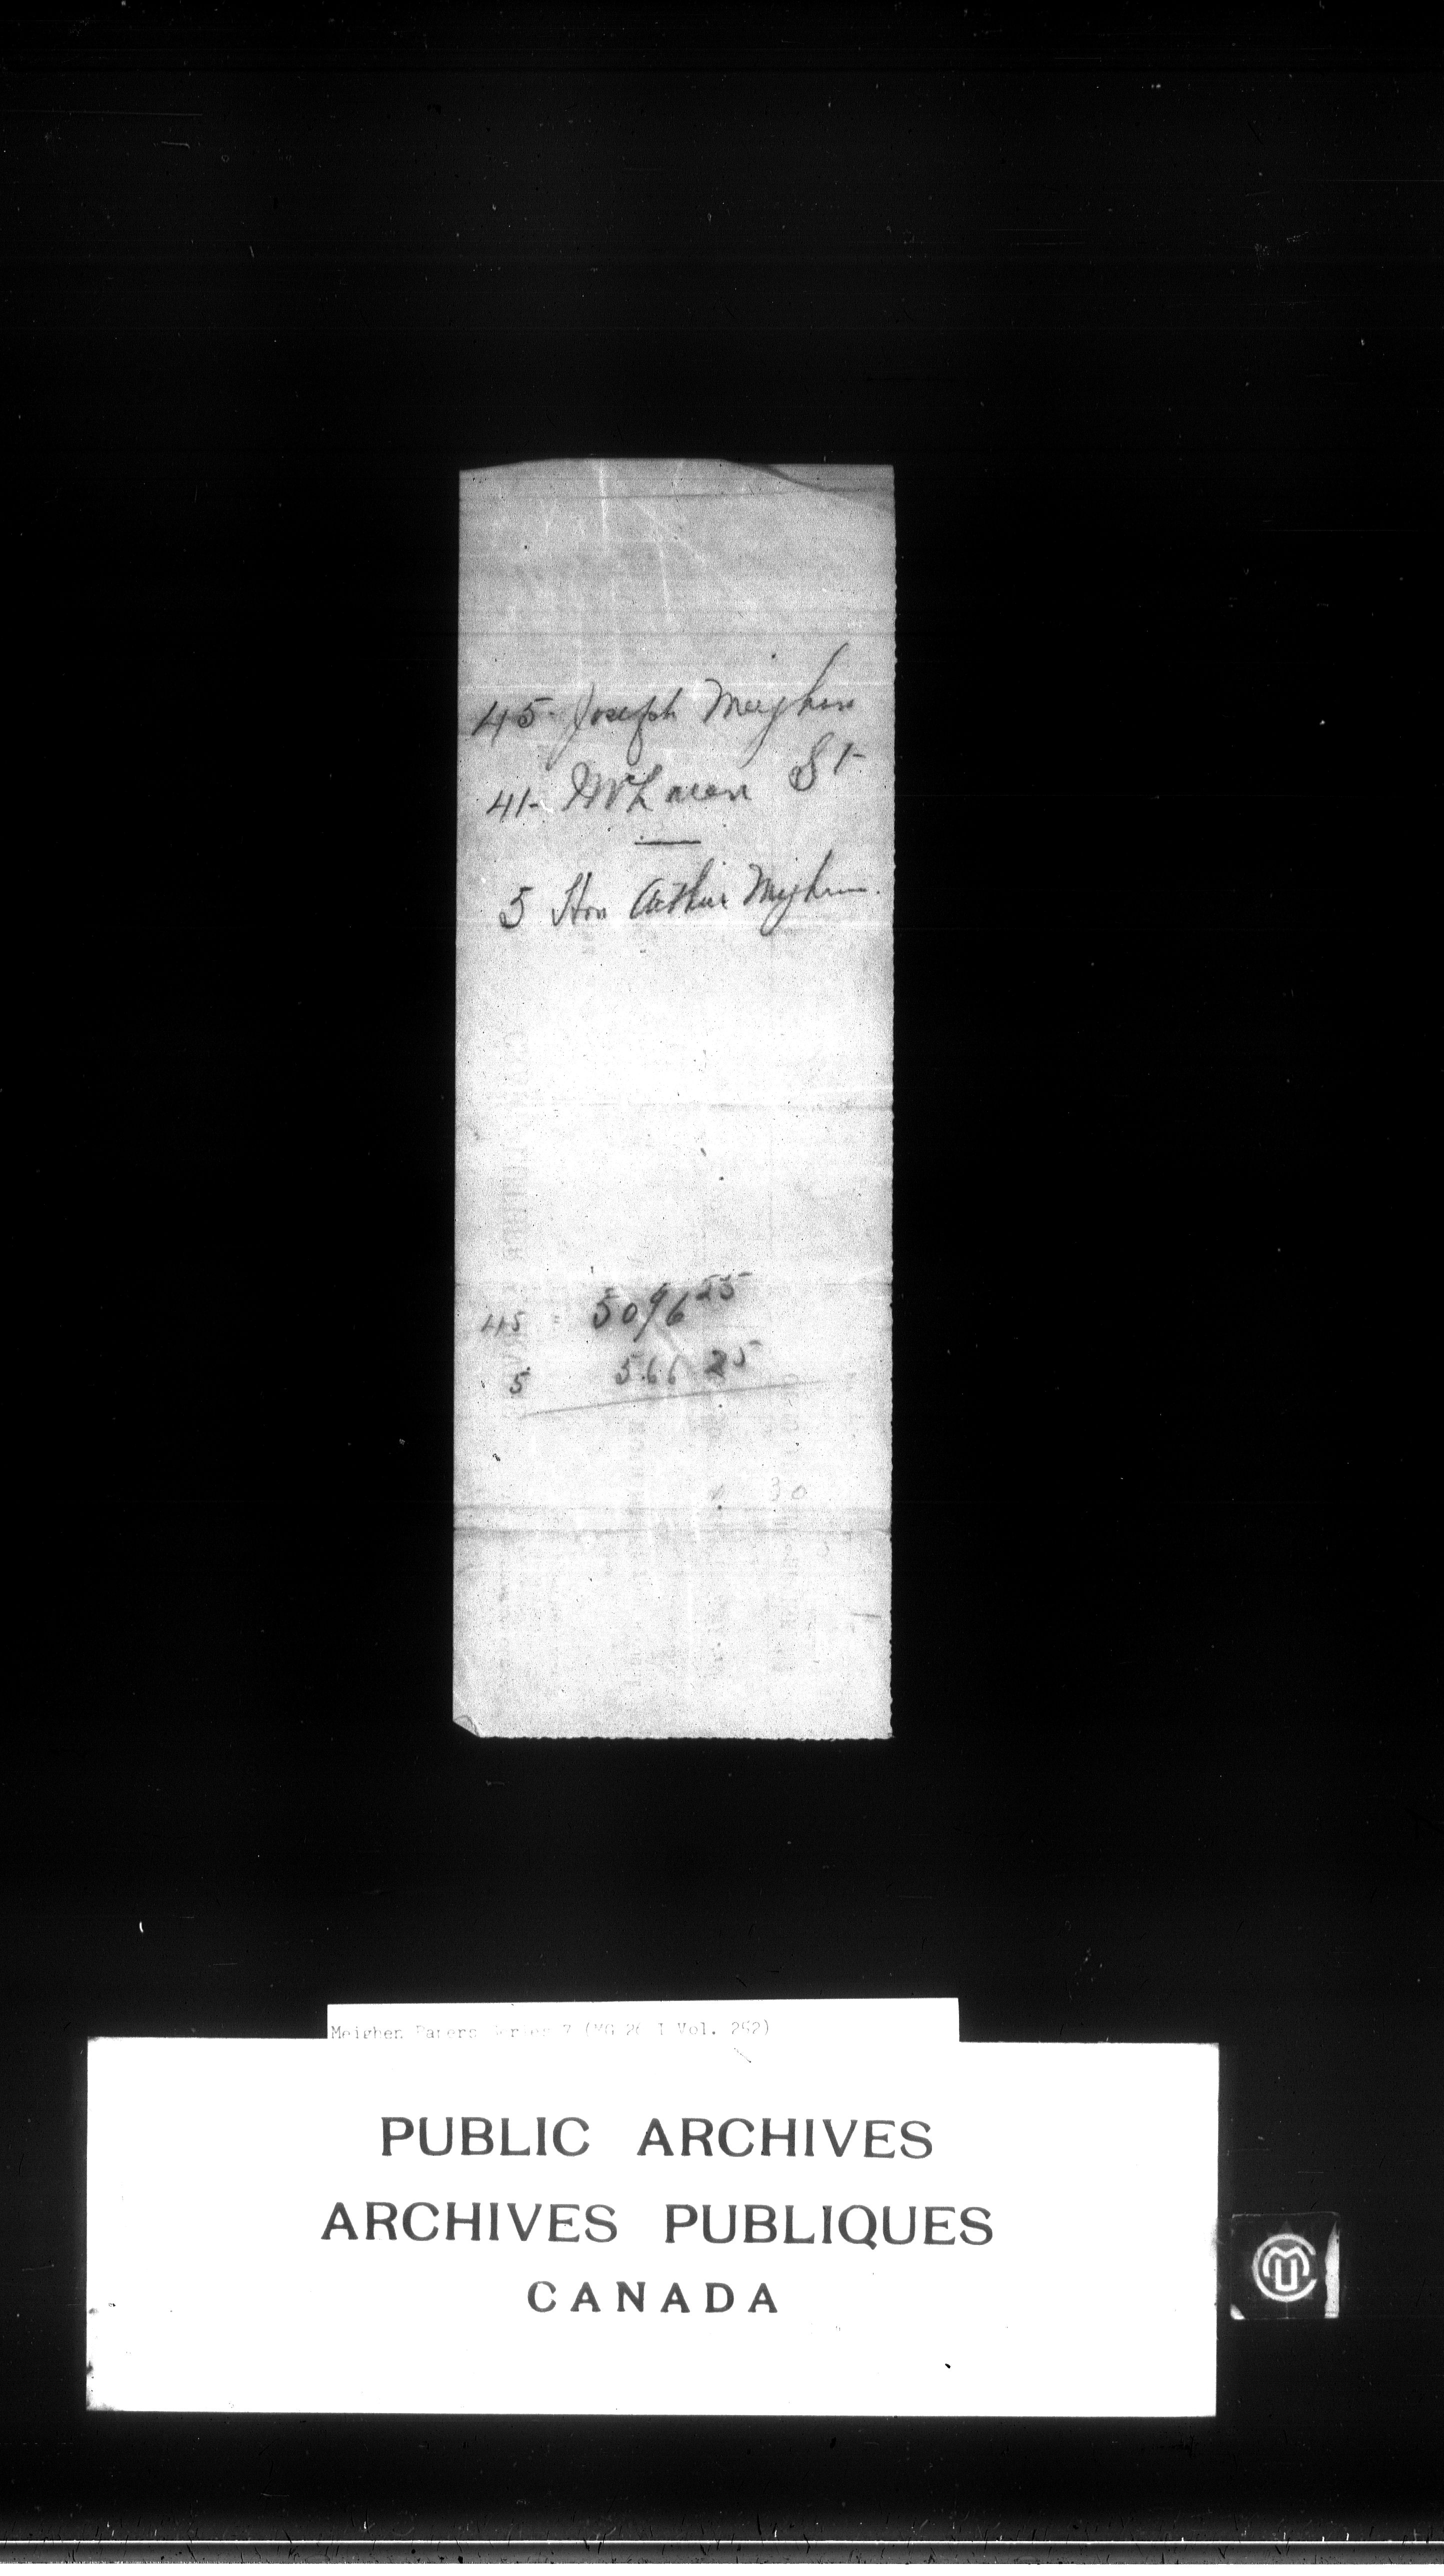 45- Joseph Meighen
41- McLaren St
5 Hon Arthur Meighen.
45 = 5096 25
5 566 25
30
Meighen Papers Series 7 (MG 26 I Vol. 252)
PUBLIC ARCHIVES
ARCHIVES PUBLIQUES
CANADA